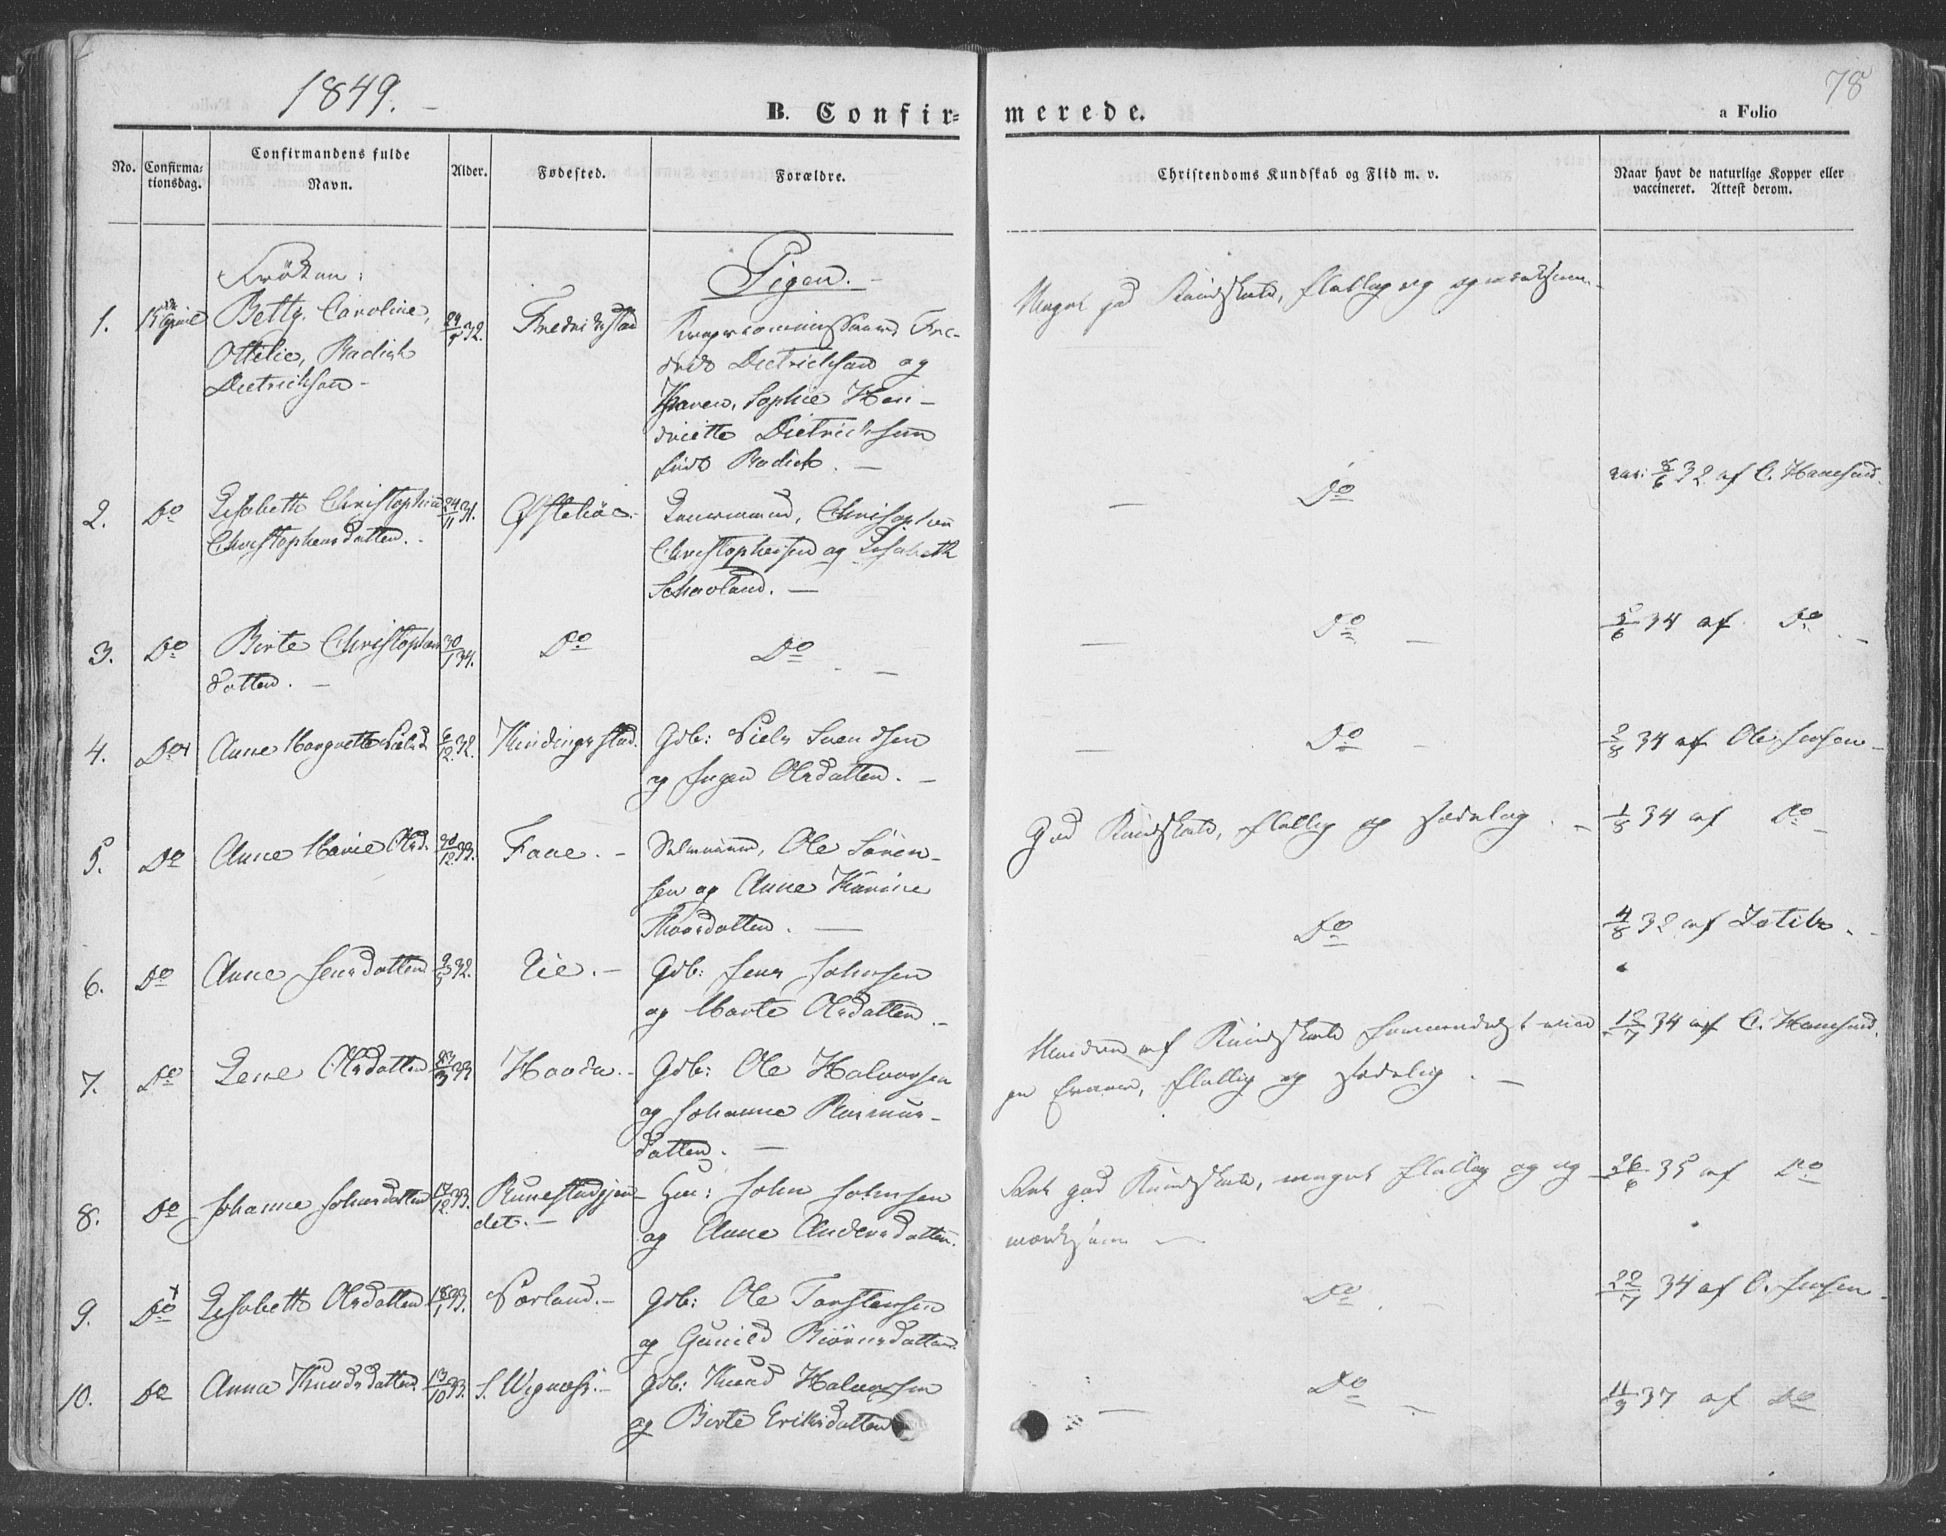 1849.
78
B. Confir-
merede.
a Folio
No.
Confirma-
tionsdag.
Confirmandens fulde
Navn.
Alder.
Fødested.
Forældre.
Christendoms Kundskab og Flid m. v.
Naar havt de naturlige Kopper eller
vaccineret. Attest derom.
Pigen.
Fröken:
1.
April
Betty, Caroline,
32.
Fredrikstad
Ottilie, Radich
Dietrichson
og
Dietrichson og
Sophie Hen-
driette Dietrichson
født Radich.
Meget god Kundskab, flittig og opmærksom
2.
Do
Lisabeth Christophine
Christophersdatter.
24/11 31.
Østebøe.
Christophersen og Lisabeth
Schovland.
Do
5/6 32 af C. Hanesund.
3.
Do
Birte Christopher
datter.
30/1 34.
Do
Do
Do
5/6 34 af Do
4.
Do
Anne Margrethe Nielsd
6/12 32.
Kindingstad.
Gdb: Niels Svendsen
og Inger Olsdatter.
Do
2/8 34 af Ole Jensen
5.
Do
Anne Marie Olsd.
33.
Faae.
Ole Sören-
sen og Anne Karine
Thorsdatter.
God Kundskab, flittig og sædelig.
1/8 34 af Do
6.
Do
Anne Jensdatter
32.
Lie.
Gdb: Jens Johnsen
og Marte Olsdatter.
Do
4/8 32 af
7.
Do
Lene Olsdatter
33
Haada.
Gdb: Ole Halvorsen
og Johanne Rasmus-
datter.
Mindre af Kundskab
Evner, flittig og sædelig.
12/7 34 af C. Hanesund.
8.
Do
Johanne Johnsdatter
17/12 33.
det.
John Johnsen
og Anne Andersdatter.
god Kundskab, meget flittig og op
mærksom
26/6 35 af Do
9.
Do
Lisabeth Olsdatter
18/1 33.
Sørland.
Gdb: Ole Torstensen
og Gunild Biörnsdatter.
Do
22/7 34 af O. Jensen
10.
Do
Anna Knudsdatter.
13/10 33.
S. Wignæs.
Gdb: Knud Halvorsen
og Birte Eriksdatter
Do
11/3 37 af Do